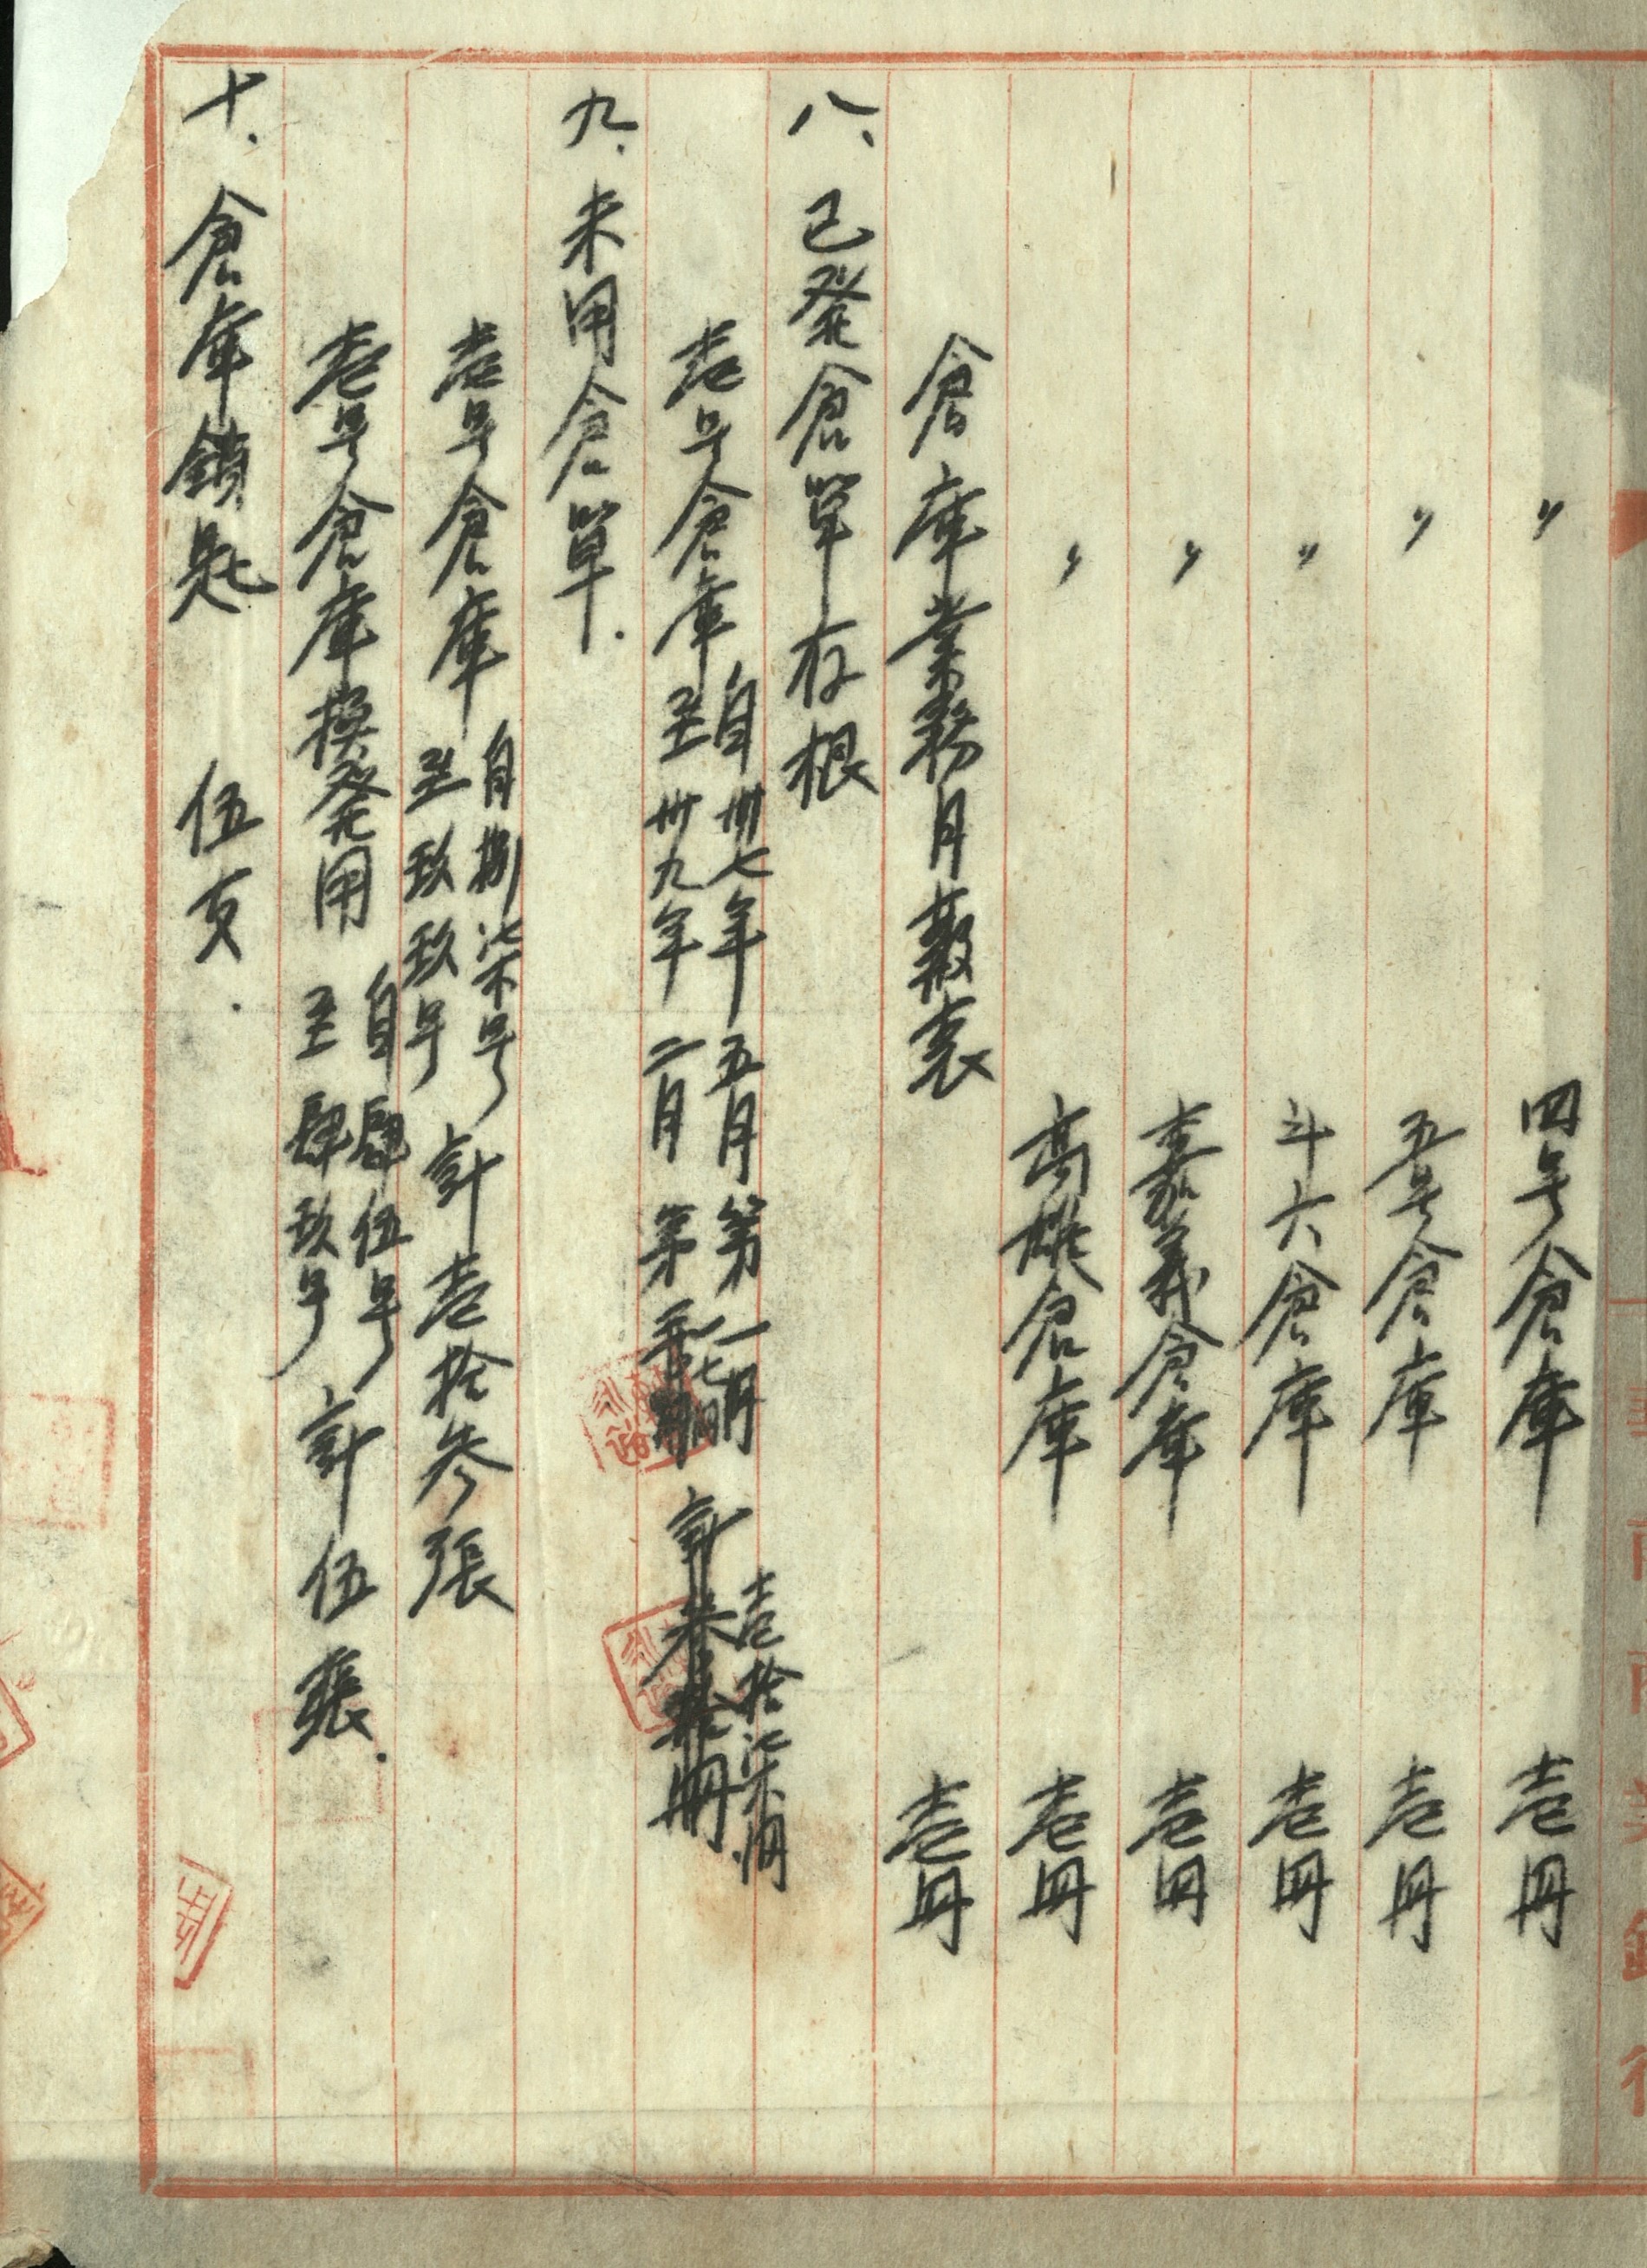 〃 四号倉庫 壱冊
〃 五号倉庫 壱冊
〃 斗六倉庫 壱冊
〃 嘉義倉庫 壱冊
〃 高雄倉庫 壱冊
倉庫業務月報表 壱冊
八、已発倉單存根
壱号倉庫 自卅七年五月第一冊
至卅九年二月第 七冊 計 壱拾柒冊
九.未用倉單.
壱号倉庫 自捌柒号
至玖玖号 計壱拾参張
壱号倉庫換発用 自肆伍号
至肆玖号 計伍張.
十.倉庫鎖匙 伍支.